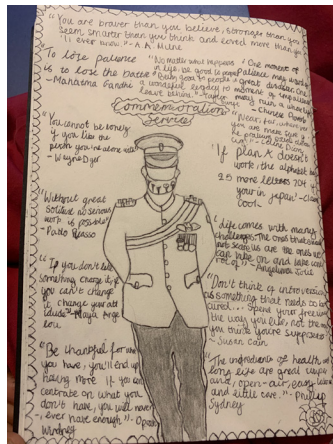 "You are braver than you believe, stronger than you
seem, smarter than you think and loved more than you
ever know." - A.A. Milne
To lose patience
is to lose the battle
- Mahatma Gandhi
"No matter what happens
in life, be good to people.
Being good to people is a
wonderful legacy to
leave behind." - Taylor
Swift
"One moment of
patience may ward off
great disaster. One
moment of impatience
may ruin a whole
life." - Chinese Proverb
Commemoration
Service
"You cannot be lonely
if you like the
person you're alone with"
- Wayne Dyer
"Near, far, wherever
you are
- Celine Dion
"If plan A doesn't
work, the alphabet has
25 more letters 204 if
your in japan" - Claire
Cook
"Without great
Solitude no serious
work is possible"
- Pablo Picasso
"Life comes with many
challenges. The ones that should
not scare us are the ones we
can take on and take control
of" - Angelina Jolie
"If you don't like
something change it, if
you can't change
it change your att
itude" - Maya Ange
lou
"Don't think of introversion
as something that needs to be
cured... Spend your free time
the way you like, not the way
you think you're supposed to"
- Susan Cain
"Be thankful for what
you have, you'll end up
having more. If you con
centrate on what you
don't have, you will never
ever have enough" - Oprah
Winfrey
"The ingredients of health and
long life are great
open-air, easy labour
and little care." - Philip
Sydney